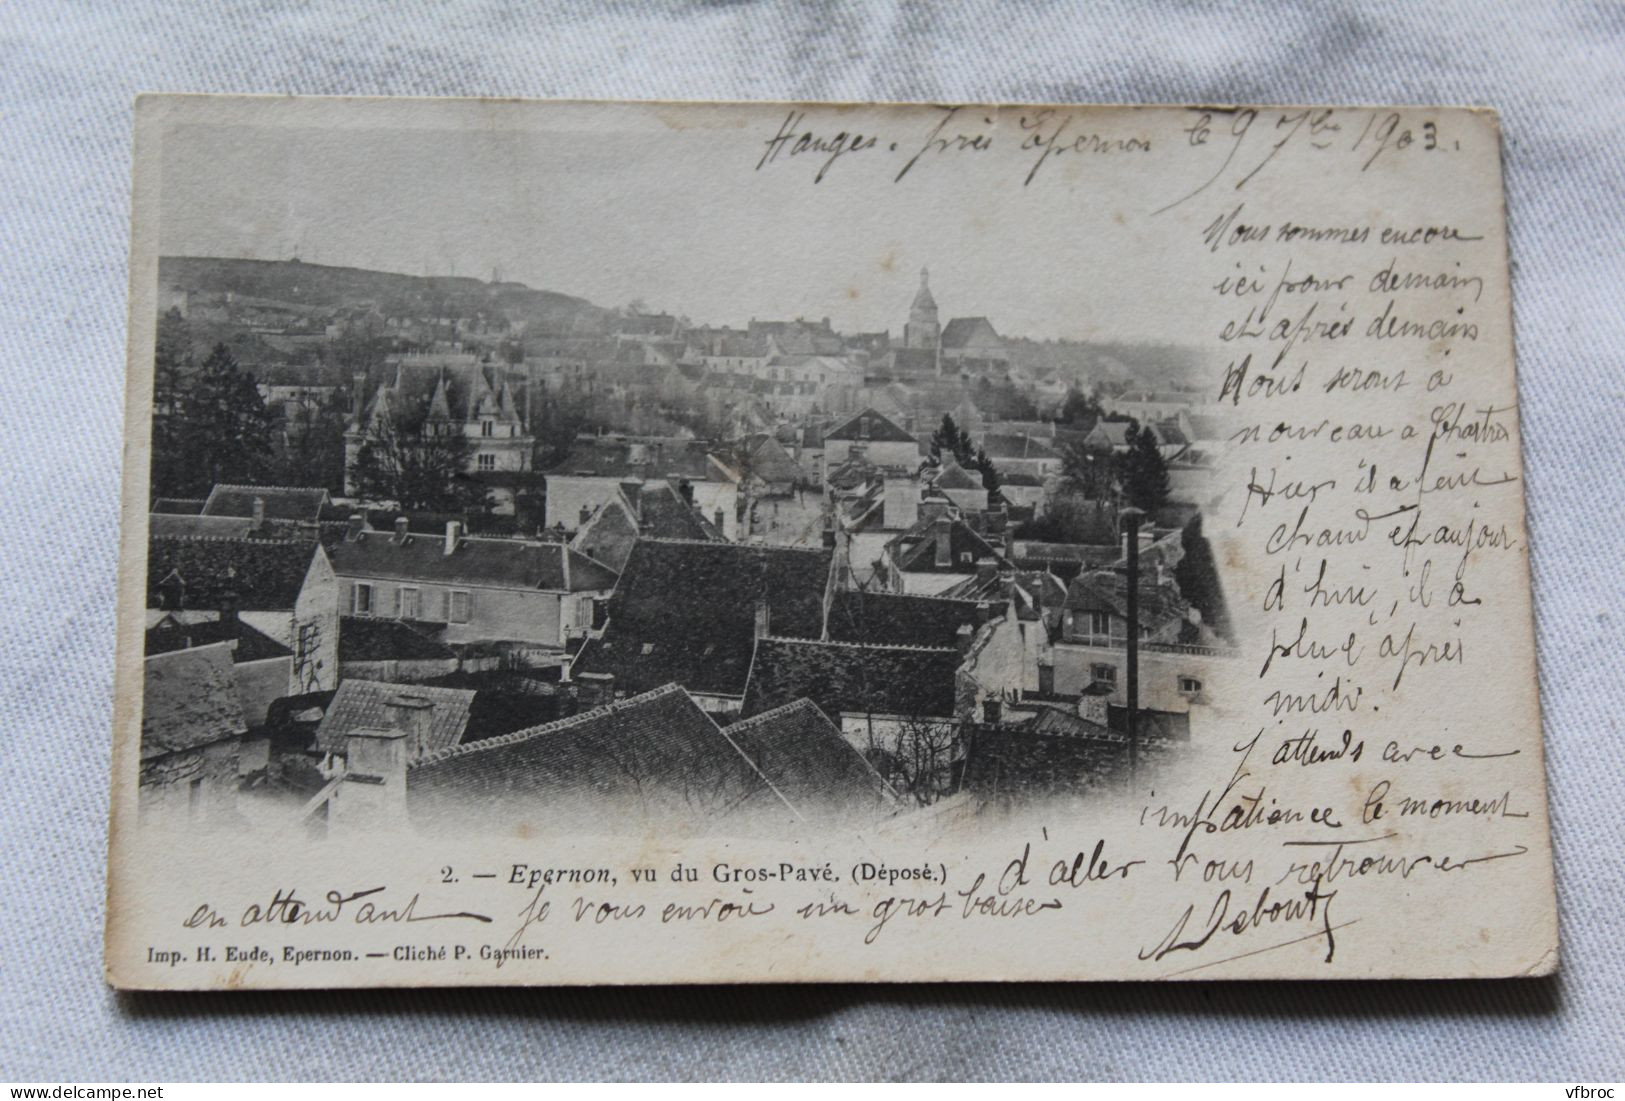 Hanches. près Epernon le 9 7bre 1903.
Nous sommes encore
ici pour demain
et après demain
Nous serons à
nouveau a Chartres
Hier il a fait
chaud et aujour
d'hui, il a
plu l'après
midi.
J'attends avec
impatience le moment
d'aller vous retrouver
2. — Epernon, vu du Gros-Pavé. (Déposé.)
en attendant je vous envoie un gros baiser
Debout
Imp. H. Eude, Epernon. — Cliché P. Garnier.
vfbroc